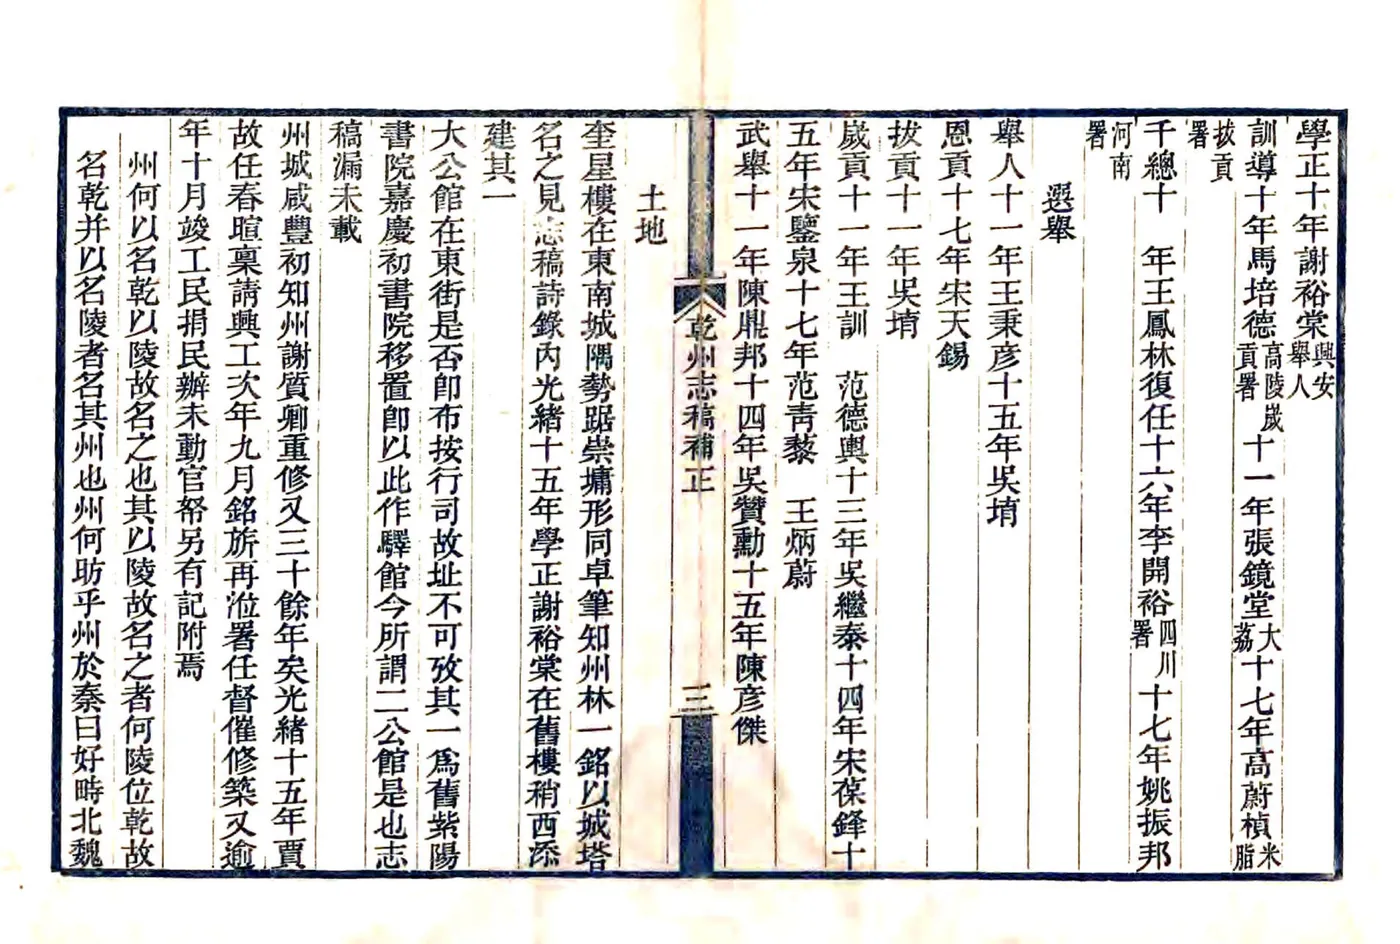 學正十年謝裕棠興安舉人
訓導十年馬培德高陵歲貢署十一年張鏡堂大荔十七年高蔚楨米脂
拔貢署
千總十　年王鳳林復任十六年李開裕四川署十七年姚振邦
河南署
選舉
舉人十一年王秉彥十五年吳堉
恩貢十七年宋天錫
拔貢十一年吳堉
歲貢十一年王訓　范德輿十三年吳繼泰十四年宋葆鋒十
五年宋鑒泉十七年范靑藜　王炳蔚
武舉十一年陳鼎邦十四年吳贊勳十五年陳彥傑
乾州志稿補正
三
土地
奎星樓在東南城隅勢踞崇墉形同卓筆知州林一銘以城塔
名之見志稿詩錄內光緒十五年學正謝裕棠在舊樓稍西添
建其一
大公館在東街是否卽布按行司故址不可攷其一爲舊紫陽
書院嘉慶初書院移置卽以此作驛館今所謂二公館是也志
稿漏未載
州城咸豐初知州謝質卿重修又三十餘年矣光緒十五年賈
故任春暄稟請興工次年九月銘旂再涖署任督催修築又逾
年十月竣工民捐民辦未動官帑另有記附焉
州何以名乾以陵故名之也其以陵故名之者何陵位乾故
名乾并以名陵者名其州也州何昉乎州於秦曰好畤北魏